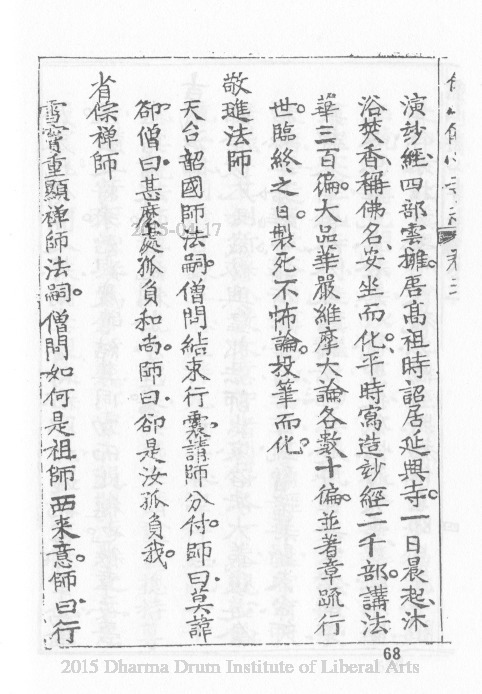 演玅經四部雲擁。唐高祖時詔居延興寺。一日晨起沐
浴焚香稱佛名、安坐而化。平時寫造玅經二千部。講法
華三百徧。大品華嚴維摩大論各數十徧。並著章疏行
世。臨終之日。製死不怖論。投筆而化。
敬璡法師
天台韶國師法嗣。僧問結束行囊。請師分付。師曰。莫諱
卻。僧曰。甚麼處孤負和尚。師曰。卻是汝孤負我。
省倧禪師
雪竇重顯禪師法嗣。僧問如何是祖師西来意。師曰。行
卷三
2015-04-17
68
2015 Dharma Drum Institute of Liberal Arts